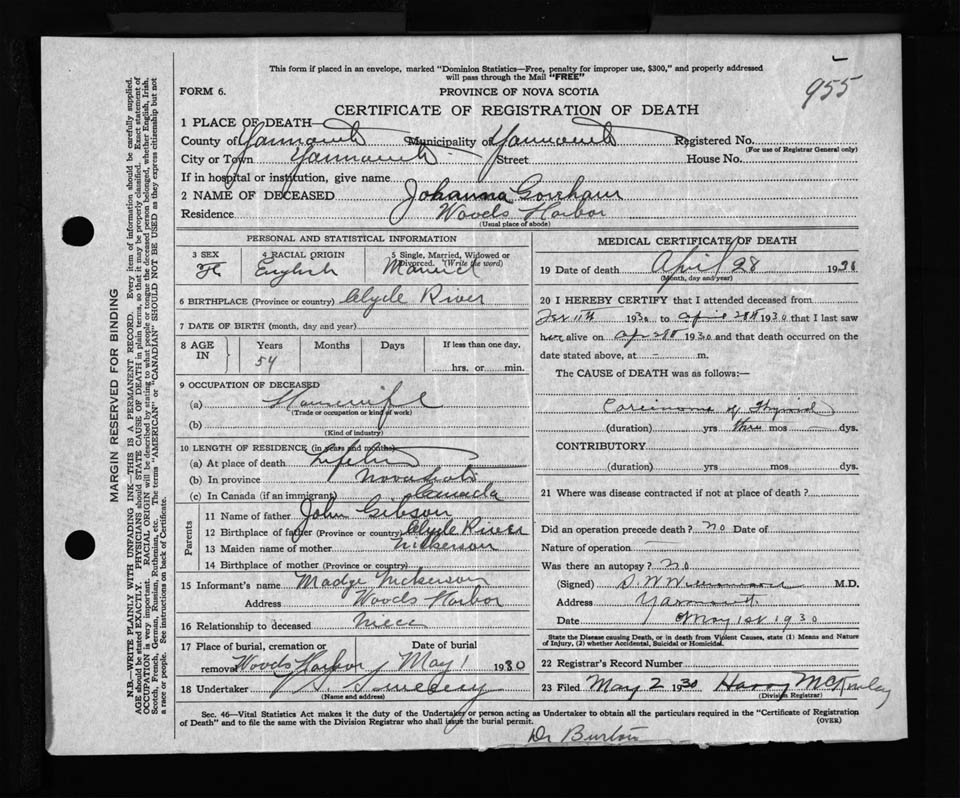 This form if placed in an envelope, marked "Dominion Statistics—Free, penalty for improper use, $300," and properly addressed
will pass through the Mail "FREE"
955
FORM 6. PROVINCE OF NOVA SCOTIA
CERTIFICATE OF REGISTRATION OF DEATH
1 PLACE OF DEATH—
County of Yarmouth Municipality of Yarmouth Registered No.
(For use of Registrar General only)
City or Town Yarmouth Street House No.
If in hospital or institution, give name
2 NAME OF DECEASED Johanna Goreham
Residence Woods Harbor
(Usual place of abode)
PERSONAL AND STATISTICAL INFORMATION
3 SEX 4 RACIAL ORIGIN 5 Single, Married, Widowed or Divorced. (Write the word)
F English Married
6 BIRTHPLACE (Province or country) Clyde River
7 DATE OF BIRTH (month, day and year)
8 AGE IN Years Months Days If less than one day,
54 hrs. or min.
9 OCCUPATION OF DECEASED
(a) Housewife
(Trade or occupation or kind of work)
(b)
(Kind of industry)
10 LENGTH OF RESIDENCE (in years and months)
(a) At place of death Life
(b) In province Nova Scotia
(c) In Canada (if an immigrant) Canada
Parents
11 Name of father John Gibson
12 Birthplace of father (Province or country) Clyde River
13 Maiden name of mother Nickerson
14 Birthplace of mother (Province or country)
15 Informant's name Madge Nickerson
Address Woods Harbor
16 Relationship to deceased niece
17 Place of burial, cremation or Date of burial
removal Woods Harbor May 1 1930
18 Undertaker Sweeny
(Name and address)
MEDICAL CERTIFICATE OF DEATH
19 Date of death April 28 19
(Month, day and year)
20 I HEREBY CERTIFY that I attended deceased from
11th 1930 to April 28th 1930 that I last saw
her alive on Apr 28th 1930 and that death occurred on the
date stated above, at - m.
The CAUSE of DEATH was as follows:—
Carcinoma of Thyroid
(duration) yrs three mos — dys.
CONTRIBUTORY
(duration) yrs mos dys.
21 Where was disease contracted if not at place of death?
Did an operation precede death? no Date of
Nature of operation
Was there an autopsy? no
(Signed) M.D.
Address Yarmouth
Date May 1st 1930
State the Disease causing Death, or in death from Violent Causes, state (1) Means and Nature
of Injury, (2) whether Accidental, Suicidal or Homicidal.
22 Registrar's Record Number
23 Filed May 2 1930 Harry McKinley
(Division Registrar)
Sec. 46—Vital Statistics Act makes it the duty of the Undertaker or person acting as Undertaker to obtain all the particulars required in the "Certificate of Registration
of Death" and to file the same with the Division Registrar who shall issue the burial permit. (OVER)
Dr Burton
MARGIN RESERVED FOR BINDING
N.B.—WRITE PLAINLY WITH UNFADING INK—THIS IS A PERMANENT RECORD. Every item of information should be carefully supplied.
AGE should be stated EXACTLY. PHYSICIANS should STATE CAUSE OF DEATH in plain terms, so that it may be properly classified. Exact statement of
OCCUPATION is very important. RACIAL ORIGIN will be described by stating to what people or tongue the deceased person belonged, whether English, Irish,
Scotch, French, German, Russian, Ruthenian, etc. The terms "AMERICAN" or "CANADIAN" SHOULD NOT BE USED as they express citizenship but not
a race or people. See instructions on back of Certificate.